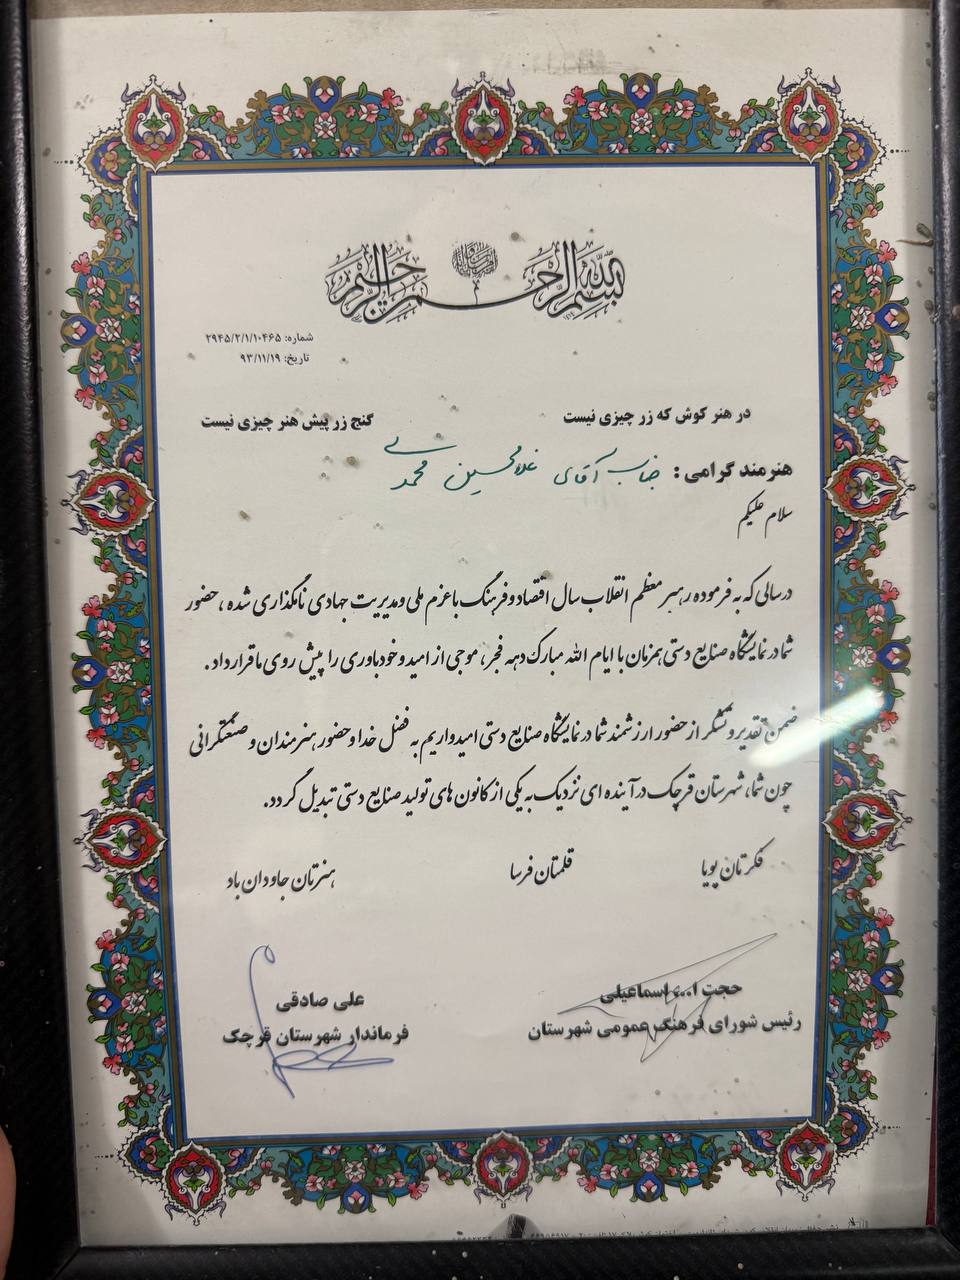 بسم الله الرحمن الرحیم
شماره: ۲۹۴۵/۲/۱/۱۰۴۶۵
تاریخ: ۹۳/۱۱/۱۹
در هنر کوش که زر چیزی نیست گنج زر پیش هنر چیزی نیست
هنرمند گرامی: جناب آقای غلامحسین محمدی
سلام علیکم
در سالی که به فرموده رهبر معظم انقلاب سال اقتصاد و فرهنگ با عزم ملی و مدیریت جهادی نامگذاری شده، حضور
شما در نمایشگاه صنایع دستی همزمان با ایام الله مبارک دهه فجر، موجی از امید و خودباوری را پیش روی ما قرار داد.
ضمن تقدیر و تشکر از حضور ارزشمند شما در نمایشگاه صنایع دستی امیدواریم به فضل خدا و حضور هنرمندان و صنعتگرانی
چون شما، شهرستان قرچک در آینده ای نزدیک به یکی از کانون های تولید صنایع دستی تبدیل گردد.
فکرتان پویا قلمتان فرسا هنرتان جاودان باد
حجت ا... اسماعیلی
رئیس شورای فرهنگ عمومی شهرستان
علی صادقی
فرماندار شهرستان قرچک